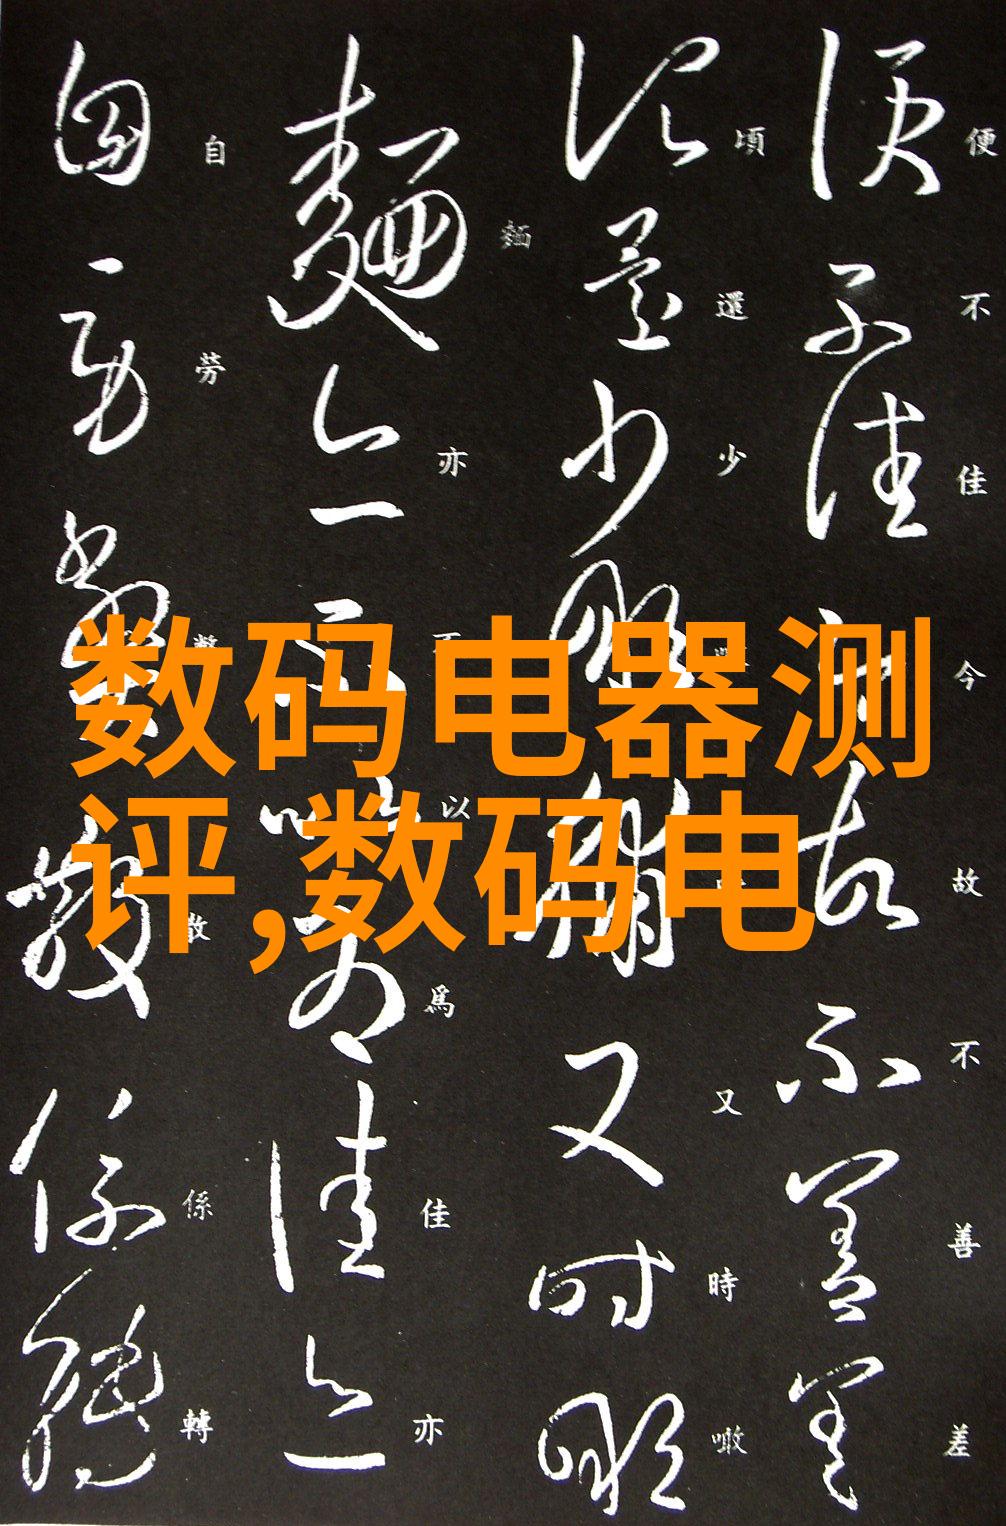 便不佳今故不善差
頃還少噉脯又時噉
麵亦不以爲佳亦
自勞弊散係轉
数码电器测
评,数码电